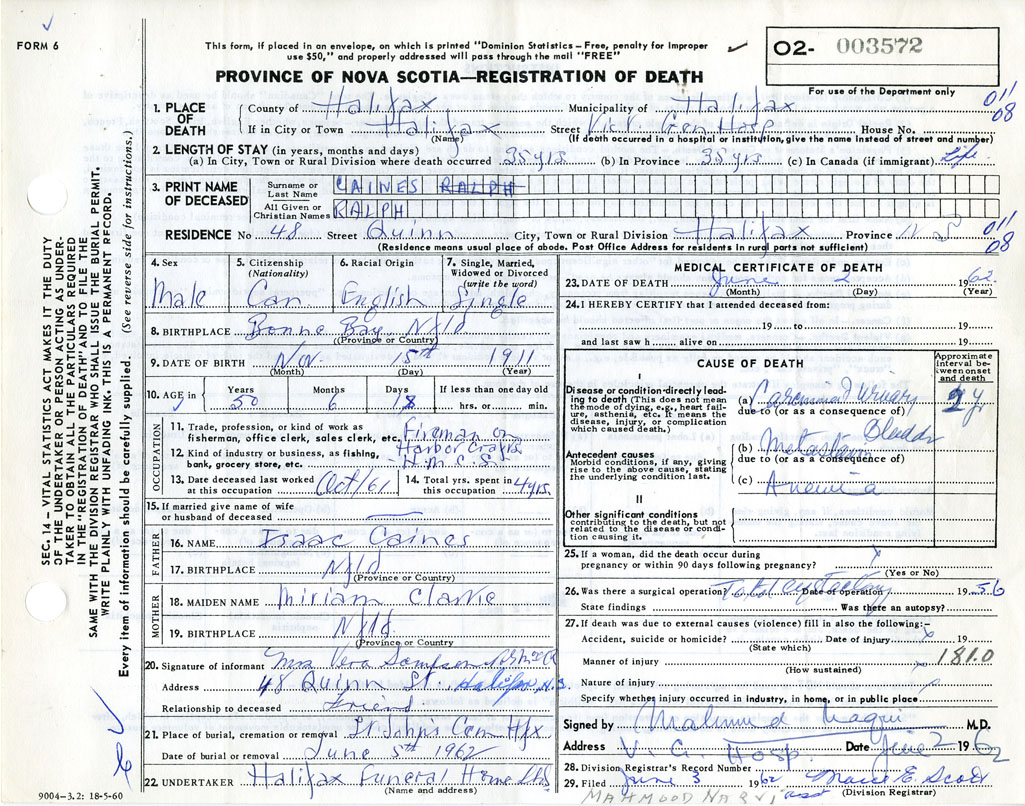 FORM 6
This form, if placed in an envelope, on which is printed "Dominion Statistics – Free, penalty for improper
use $50," and properly addressed will pass through the mail "FREE"
PROVINCE OF NOVA SCOTIA—REGISTRATION OF DEATH
O2- 003572
For use of the Department only
SEC. 14 – VITAL STATISTICS ACT MAKES IT THE DUTY
OF THE UNDERTAKER OR PERSON ACTING AS UNDER-
TAKER "TO OBTAIN ALL THE PARTICULARS REQUIRED
IN THE "REGISTRATION OF DEATH" AND TO FILE THE
SAME WITH THE DIVISION REGISTRAR WHO SHALL ISSUE THE BURIAL PERMIT.
WRITE PLAINLY WITH UNFADING INK. THIS IS A PERMANENT RECORD.
Every item of information should be carefully supplied. (See reverse side for instructions.)
1. PLACE OF DEATH
County of Halifax Municipality of Halifax
011
08
If in City or Town Halifax Street Vict. Gen Hosp House No.
(Name) (If death occurred in a hospital or institution, give the name instead of street and number)
2. LENGTH OF STAY (in years, months and days)
(a) In City, Town or Rural Division where death occurred 35 yrs. (b) In Province 35 yrs (c) In Canada (if immigrant) Life
3. PRINT NAME OF DECEASED
Surname or Last Name CAINES RALPH
All Given or Christian Names RALPH
RESIDENCE No 48 Street Quinn City, Town or Rural Division Halifax Province N S
011
08
(Residence means usual place of abode. Post Office Address for residents in rural parts not sufficient)
4. Sex
Male
5. Citizenship (Nationality)
Can
6. Racial Origin
English
7. Single, Married, Widowed or Divorced (write the word)
Single
8. BIRTHPLACE Bonne Bay Nfld
(Province or Country)
9. DATE OF BIRTH Nov 15th 1911
(Month) (Day) (Year)
10. AGE in Years 50 Months 6 Days 18 If less than one day old hrs. or min.
OCCUPATION
11. Trade, profession, or kind of work as fisherman, office clerk, sales clerk, etc. Fireman on
12. Kind of industry or business, as fishing, bank, grocery store, etc. Harbor Crafts
H.M.C.S.
13. Date deceased last worked at this occupation Oct/61
14. Total yrs. spent in this occupation 4 yrs.
15. If married give name of wife or husband of deceased
FATHER
16. NAME Isaac Caines
17. BIRTHPLACE Nfld
(Province or Country)
MOTHER
18. MAIDEN NAME Miriam Clarke
19. BIRTHPLACE Nfld.
(Province or Country)
20. Signature of informant Mrs Vera Sampson
Address 48 Quinn St. Halifax, N.S.
Relationship to deceased Friend
21. Place of burial, cremation or removal St. John's Cem Hfx
Date of burial or removal June 5th 1962
22. UNDERTAKER Halifax Funeral Home Ltd
(Name and address)
9004-3.2: 18-5-60
MEDICAL CERTIFICATE OF DEATH
23. DATE OF DEATH June 2 1962.
(Month) (Day) (Year)
24. I HEREBY CERTIFY that I attended deceased from:
19 to 19
and last saw h alive on 19
CAUSE OF DEATH
Approximate interval between onset and death
I
Disease or condition directly leading to death (This does not mean the mode of dying, e.g., heart failure, asthenia, etc. It means the disease, injury, or complication which caused death.)
(a) Carcinoma of Urinary Bladder 2 y
due to (or as a consequence of)
Antecedent causes
Morbid conditions, if any, giving rise to the above cause, stating the underlying condition last.
(b) Metastasis
due to (or as a consequence of)
(c) Anemia
II
Other significant conditions
contributing to the death, but not related to the disease or condition causing it.
25. If a woman, did the death occur during
pregnancy or within 90 days following pregnancy? x
(Yes or No)
26. Was there a surgical operation? Total Cystectomy Date of operation 1956
State findings Was there an autopsy?
27. If death was due to external causes (violence) fill in also the following:–
Accident, suicide or homicide? Date of injury x 19
(State which)
Manner of injury x 181.0
(How sustained)
Nature of injury
Specify whether injury occurred in industry, in home, or in public place
Signed by Mahmood Naqvi M.D.
Address V. G. Hosp. Date June 2 1962
28. Division Registrar's Record Number
29. Filed June 3 1962 Marie E. Scott
(Division Registrar)
MAHMOOD NAQVI